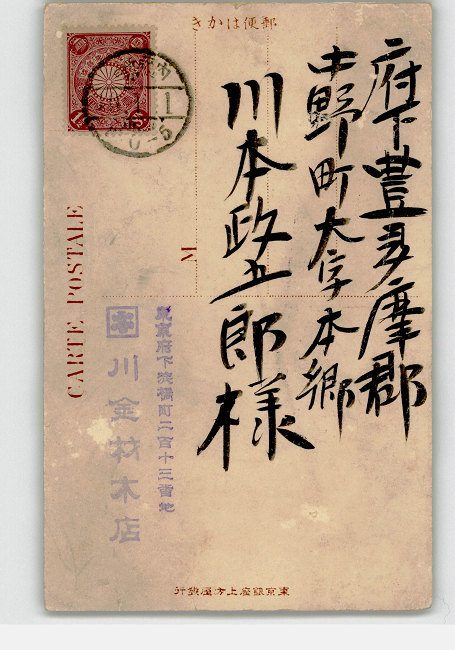 きかは便郵
府下豊多摩郡
中野町大字本郷
川本政五郎様
CARTE POSTALE
M
東京府下淀橋町二百十三番地
川金材木店
東京銀座上方屋発行